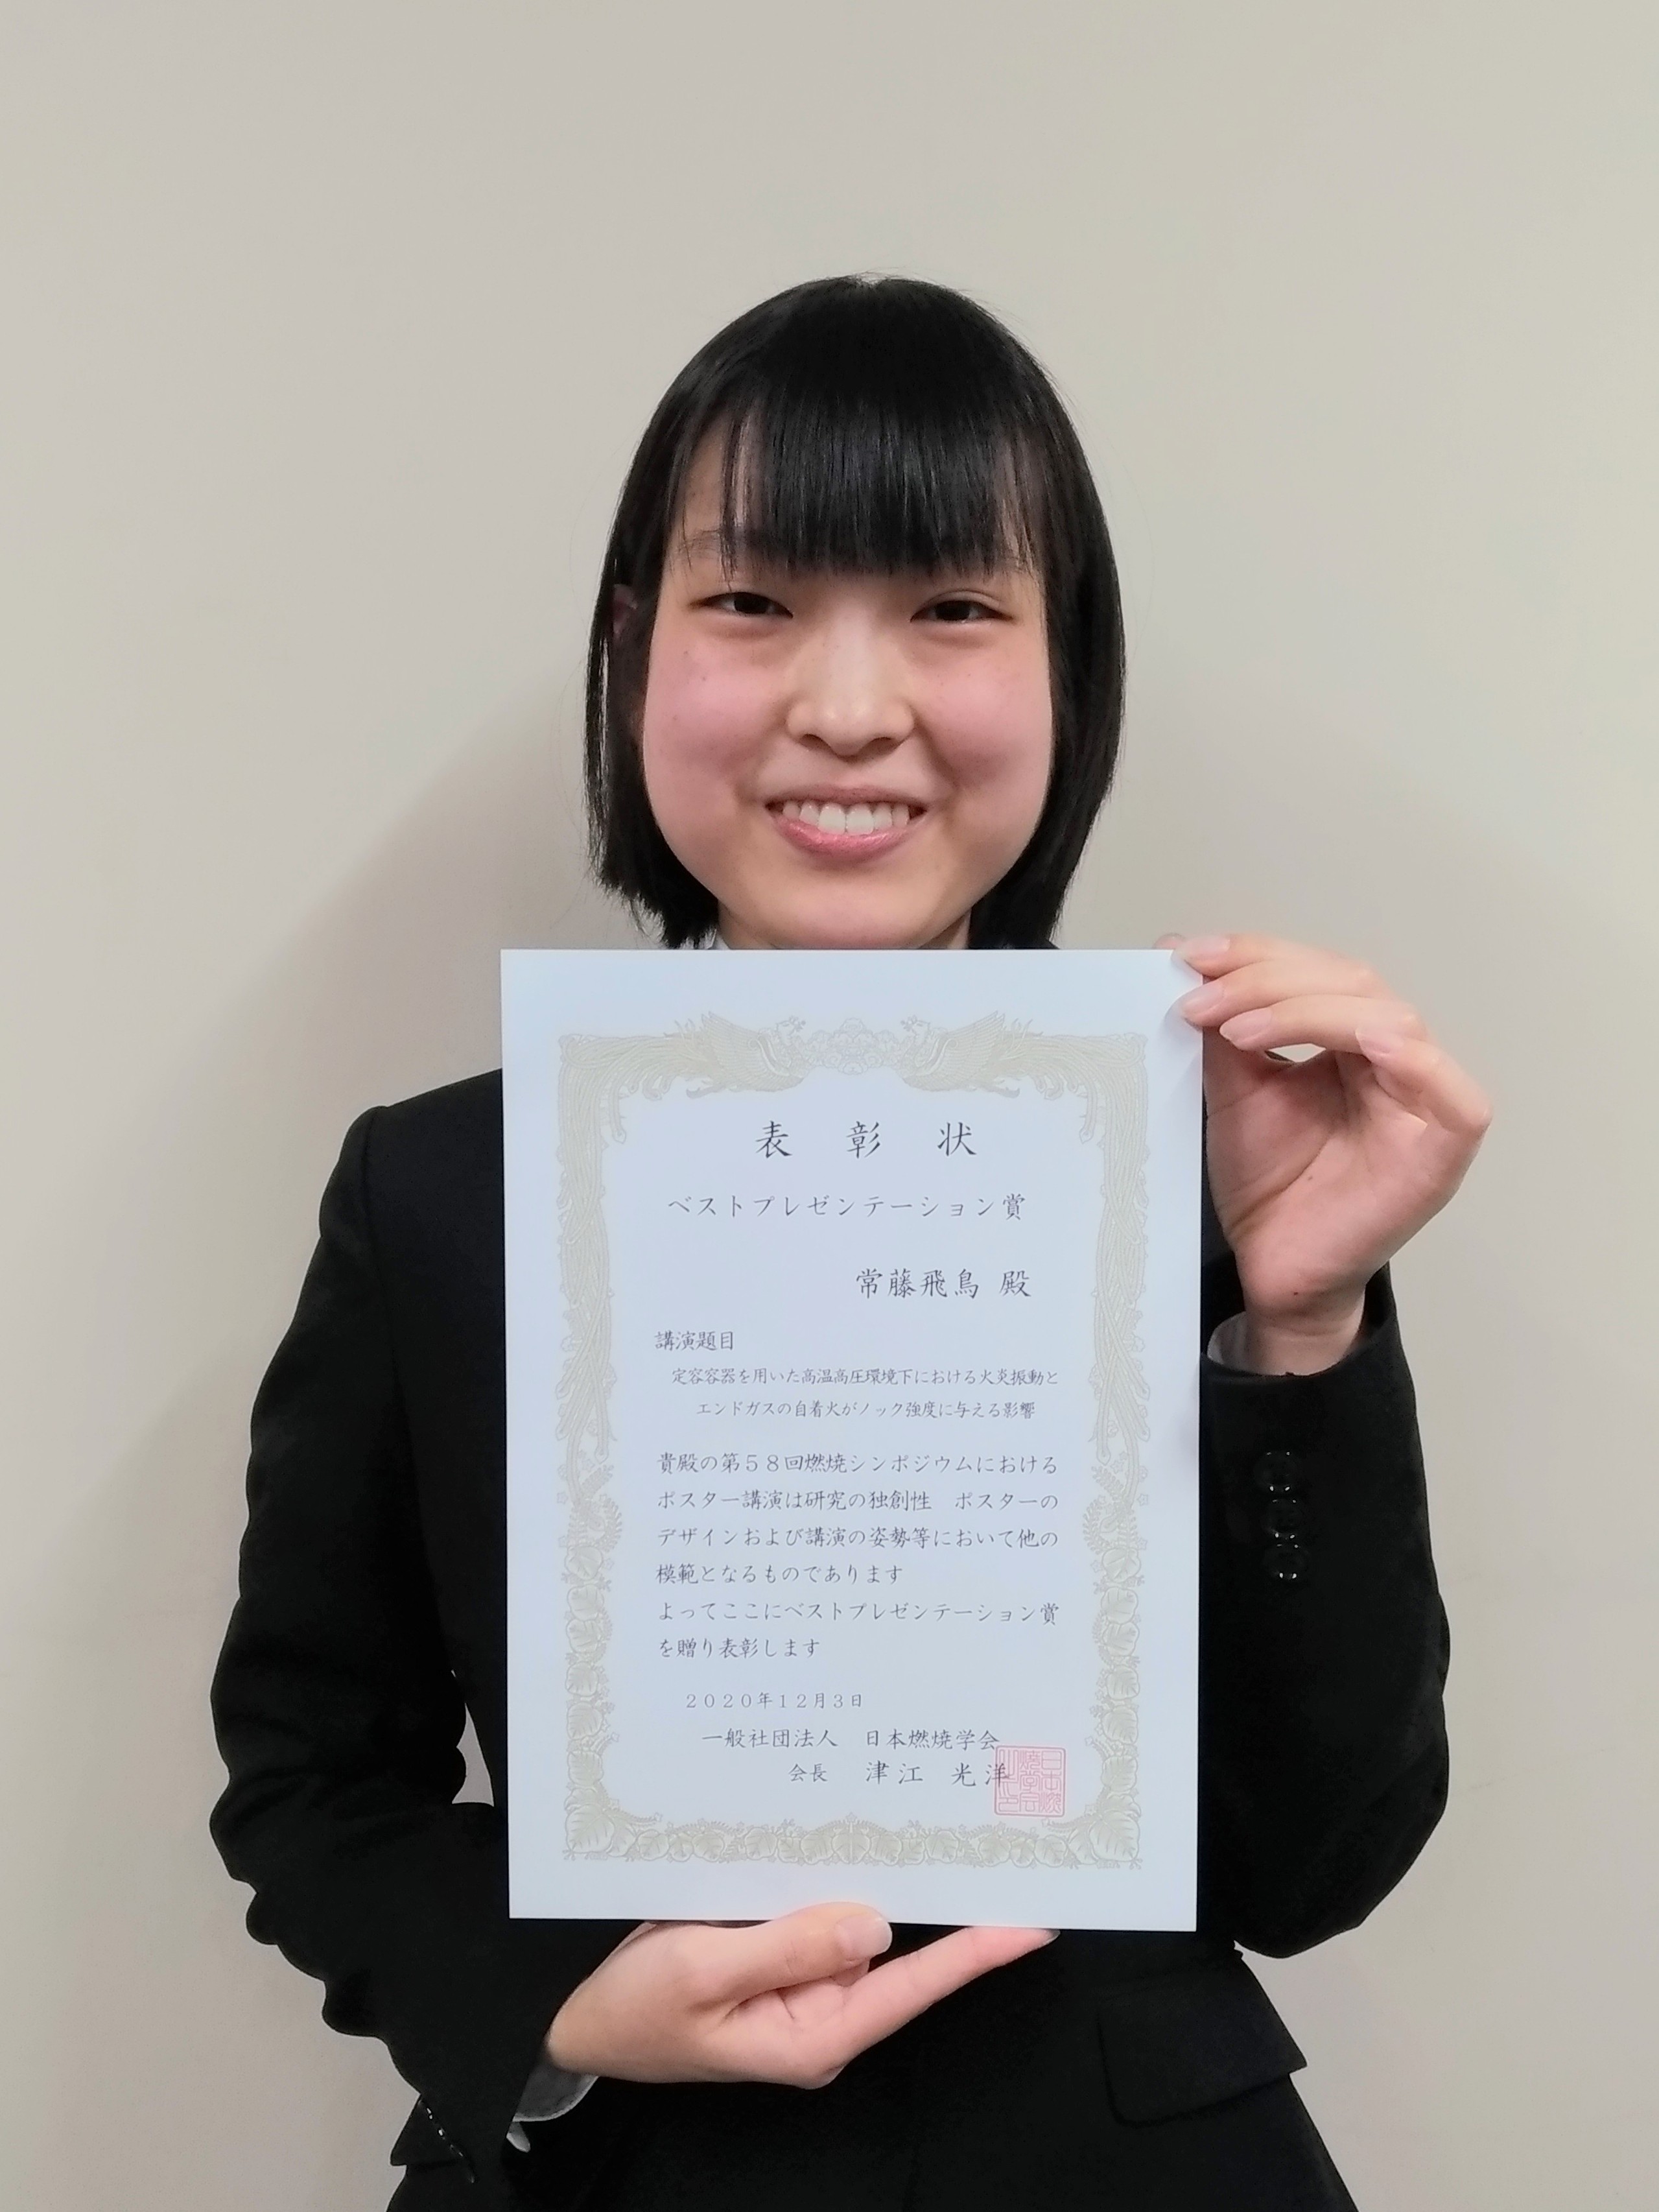 表彰状
ベストプレゼンテーション賞
常藤飛鳥 殿
講演題目
定容容器を用いた高温高圧環境下における火炎振動と
エンドガスの自着火がノック強度に与える影響
貴殿の第５８回燃焼シンポジウムにおける
ポスター講演は研究の独創性　ポスターの
デザインおよび講演の姿勢等において他の
模範となるものであります
よってここにベストプレゼンテーション賞
を贈り表彰します
２０２０年１２月３日
一般社団法人　日本燃焼学会
会長　津江　光洋